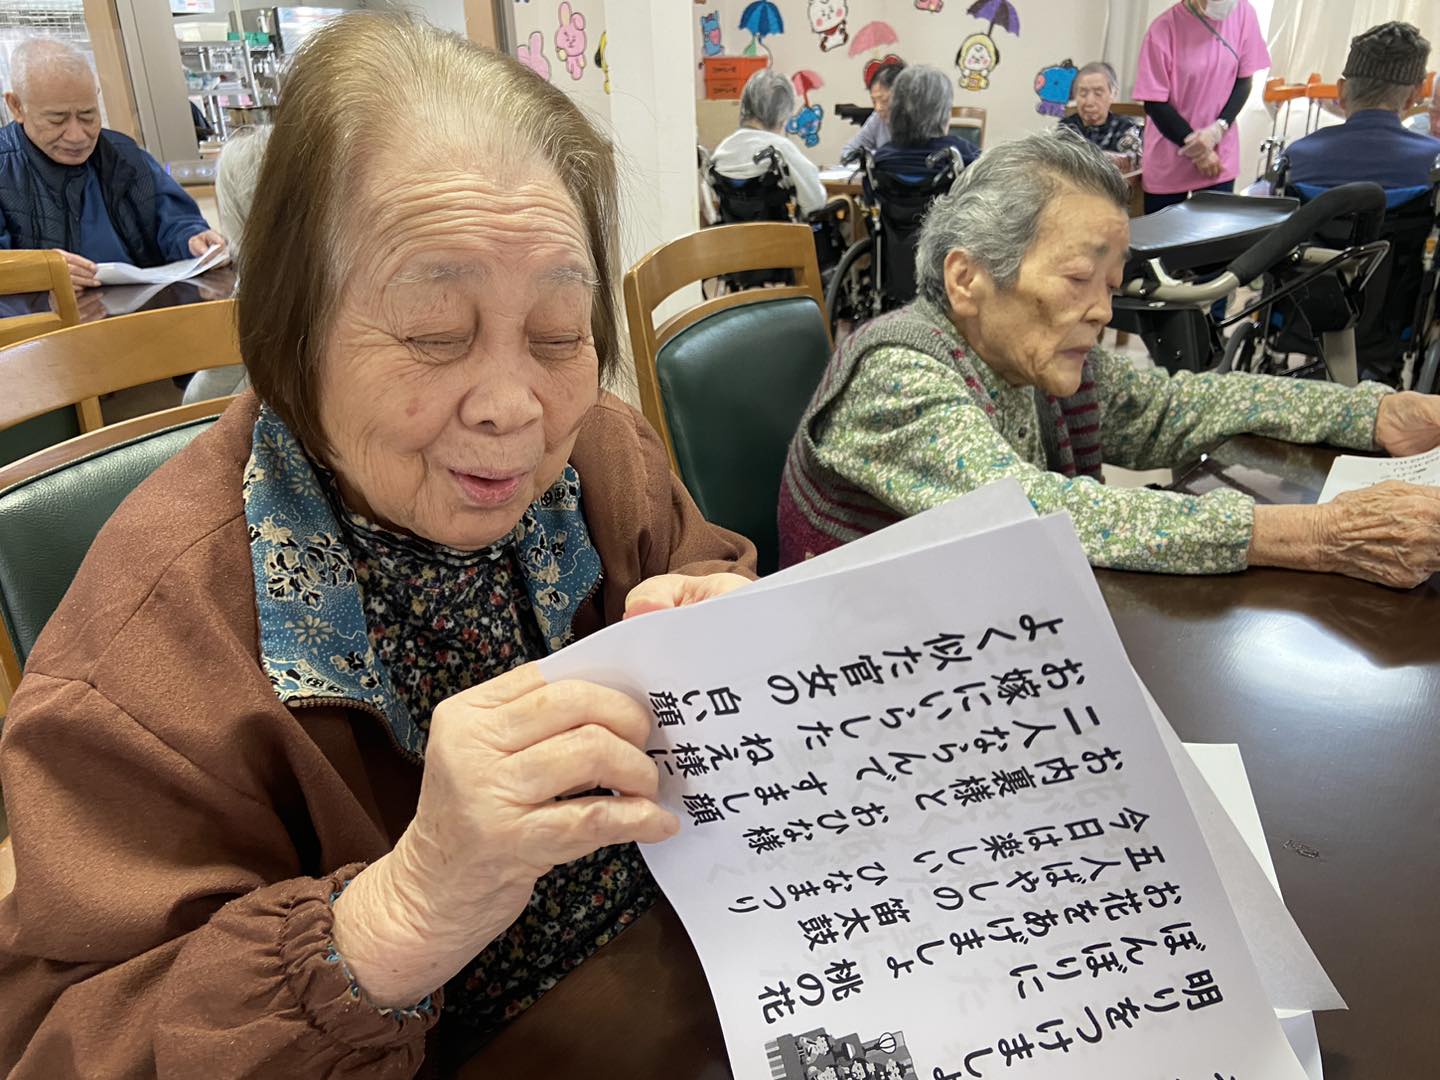 明りをつけましょ
ぼんぼりに
お花をあげましょ 桃の花
五人ばやしの 笛太鼓
今日は楽しい ひなまつり
お内裏様と おひな様
二人ならんで すまし顔
お嫁にいらした ねえ様に
よく似た官女の 白い顔